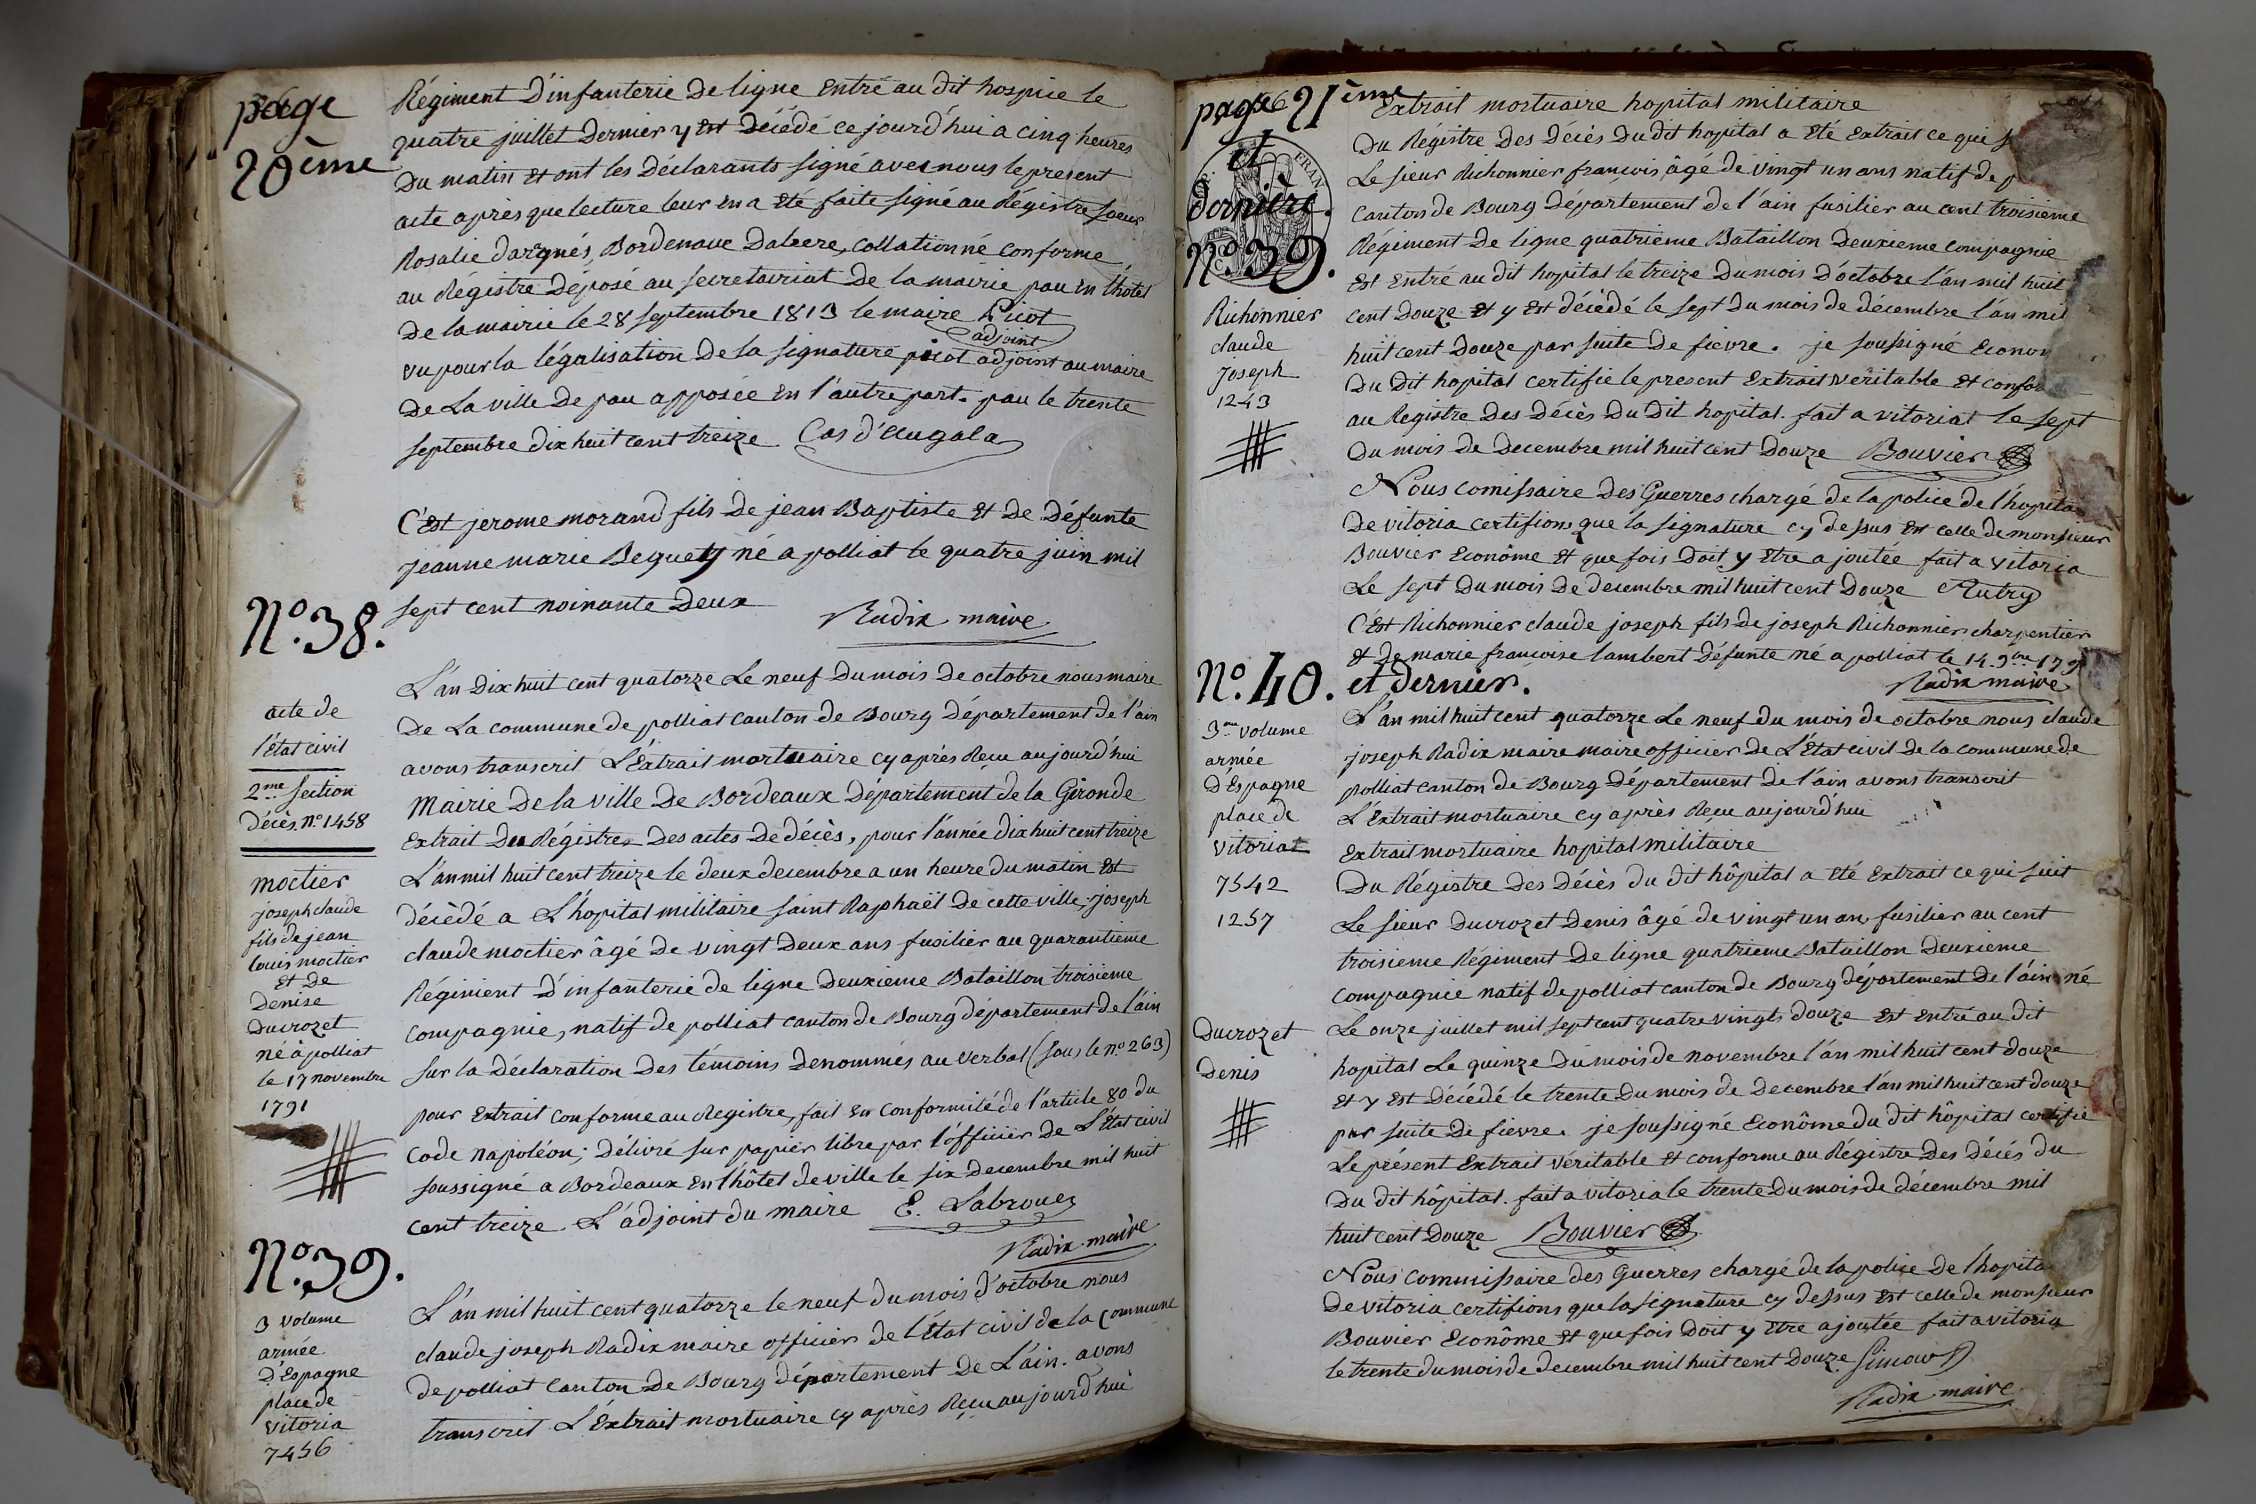 page
20ème
Régiment D'infanterie De ligne Entré au Dit hospice le
quatre juillet Dernier y Est Décédé ce jourd'hui a cinq heures
Du matin Et ont les Déclarants signé avec nous le present
acte après que lecture leur en a Eté faite signé au Régistre soeur
Rosalie dargnés, Bordenave Dabrere, collationné conforme
au Régistre Déposé au secretariat De la mairie pau En l'hôtel
De la mairie le 28 septembre 1813 le maire Picot
adjoint
vu pour la légalisation De la signature picot adjoint au maire
De La ville De pau apposée En l'autre part. pau le trente
septembre dix huit cent treize Cas d'Augala
C'Est jerome morand fils De jean Baptiste Et De Défunte
jeanne marie Beguety né a polliat le quatre juin mil
sept cent noinante Deux Radix maire
N°.38.
acte de
l'État civil
2me section
Décès n° 1458
moctier
joseph claude
fils de jean
louis moctier
et de
Denise
Ducrozet
né à polliat
le 17 novembre
1791
L'an Dix huit cent quatorze Le neuf Du mois De octobre nous maire
De La commune de polliat canton de Bourg Département de l'ain
avons transcrit L'Extrait mortuaire cy après Reçu aujourd'hui
Mairie De la ville De Bordeaux Département de la Gironde
Extrait Du Régistre Des actes De décès, pour l'année dix huit cent treize
L'an mil huit cent treize le deux decembre a un heure du matin Est
décèdé a L'hopital militaire saint Raphaël De cette ville, joseph
claude moctier âgé de vingt Deux ans fusilier au quarantieme
Régiment D'infanterie de ligne Deuxieme Bataillon troisieme
compagnie, natif de polliat canton de Bourg département de l'ain
sur la Déclaration Des témoins Denommés au verbal (sous le n° 263)
pour Extrait conforme au Registre, fait En conformité de l'article 80 du
Code napoléon; Délivré sur papier libre par l'officier de L'État civil
soussigné a Bordeaux En l'hôtel de ville le six Decembre mil huit
cent treize L'adjoint du maire E. Labroue
Radix maire
N°.39.
3 volume
armée
D'Espagne
place de
vitoria
7456
L'an mil huit cent quatorze le neuf Du mois d'octobre nous
claude joseph Radix maire officier de l'État civil de la commune
de polliat canton De Bourg département De L'ain. avons
transcrit L'Extrait mortuaire cy après Reçu aujourd'hui
page 21ème
et
dernière.
N°.39.
Richonnier
claude
Joseph
1243
Extrait mortuaire hopital militaire
Du Régistre Des Décès Du dit hopital a Eté Extrait ce qui
Le sieur Richonnier françois âgé de vingt un ans natif de
canton de Bourg Département de l'ain fusilier au cent troisieme
Régiment De ligne quatrieme Bataillon Deuxieme compagnie
Est Entré au dit hopital le treize Du mois D'octobre l'an mil huit
cent Douze Et y Est décèdé le sept Du mois de décembre l'an mil
huit cent Douze par suite De fievre. je soussigné
Du Dit hopital certifie le present Extrait veritable Et
au Registre Des Décès Du dit hopital. fait a vitoriat le sept
Du mois De Decembre mil huit cent Douze Bouvier
Nous comissaire Des Guerres chargé de la police de l'hopital
De vitoria certifions que la signature cy Dessus Est celle de monsieur
Bouvier Econôme Et que fois Doit y Etre ajoutée fait a vitoria
Le sept Du mois De decembre mil huit cent Douze Autry
C'Est Richonnier claude joseph fils De joseph Richonnier charpentier
Et De marie francoise lambert Défunte né a polliat le 14 9bre
Radix maire
N°.40. et dernier.
3me volume
armée
D'Espagne
place de
vitoriat
7542
1257
Ducrozet
Denis
L'an mil huit cent quatorze Le neuf du mois de octobre nous claude
joseph Radix maire maire officier de L'État civil de la commune de
polliat canton de Bourg Département de l'ain avons transcrit
L'Extrait mortuaire cy après Reçu aujourd'hui
Extrait mortuaire hopital militaire
Du Régistre Des Décès du dit hôpital a Eté Extrait ce qui suit
Le sieur Ducrozet Denis âgé de vingt un an fusilier au cent
troisieme Régiment De ligne quatrieme Bataillon Deuxieme
compagnie natif de polliat canton de Bourg département De l'ain né
Le onze juillet mil sept cent quatre vingts douze Est Entré au dit
hopital Le quinze Du mois de novembre l'an mil huit cent douze
Et y Est Décédé le trente Du mois de Decembre l'an mil huit cent douze
par suite De fievre. je soussigné Econôme du dit hôpital certifie
Le présent Extrait véritable Et conforme au Régistre Des décés Du
Du dit hôpital. fait a vitoria le trente Du mois de décembre mil
huit cent Douze Bouvier
Nous commissaire des Guerres chargé de la police de l'hopita
De vitoria certifions que la signature cy dessus Est celle de monsieur
Bouvier Econôme Et que fois Doit y Etre ajoutée fait a vitoria
le trente du mois de decembre mil huit cent Douze Simow
Radix maire